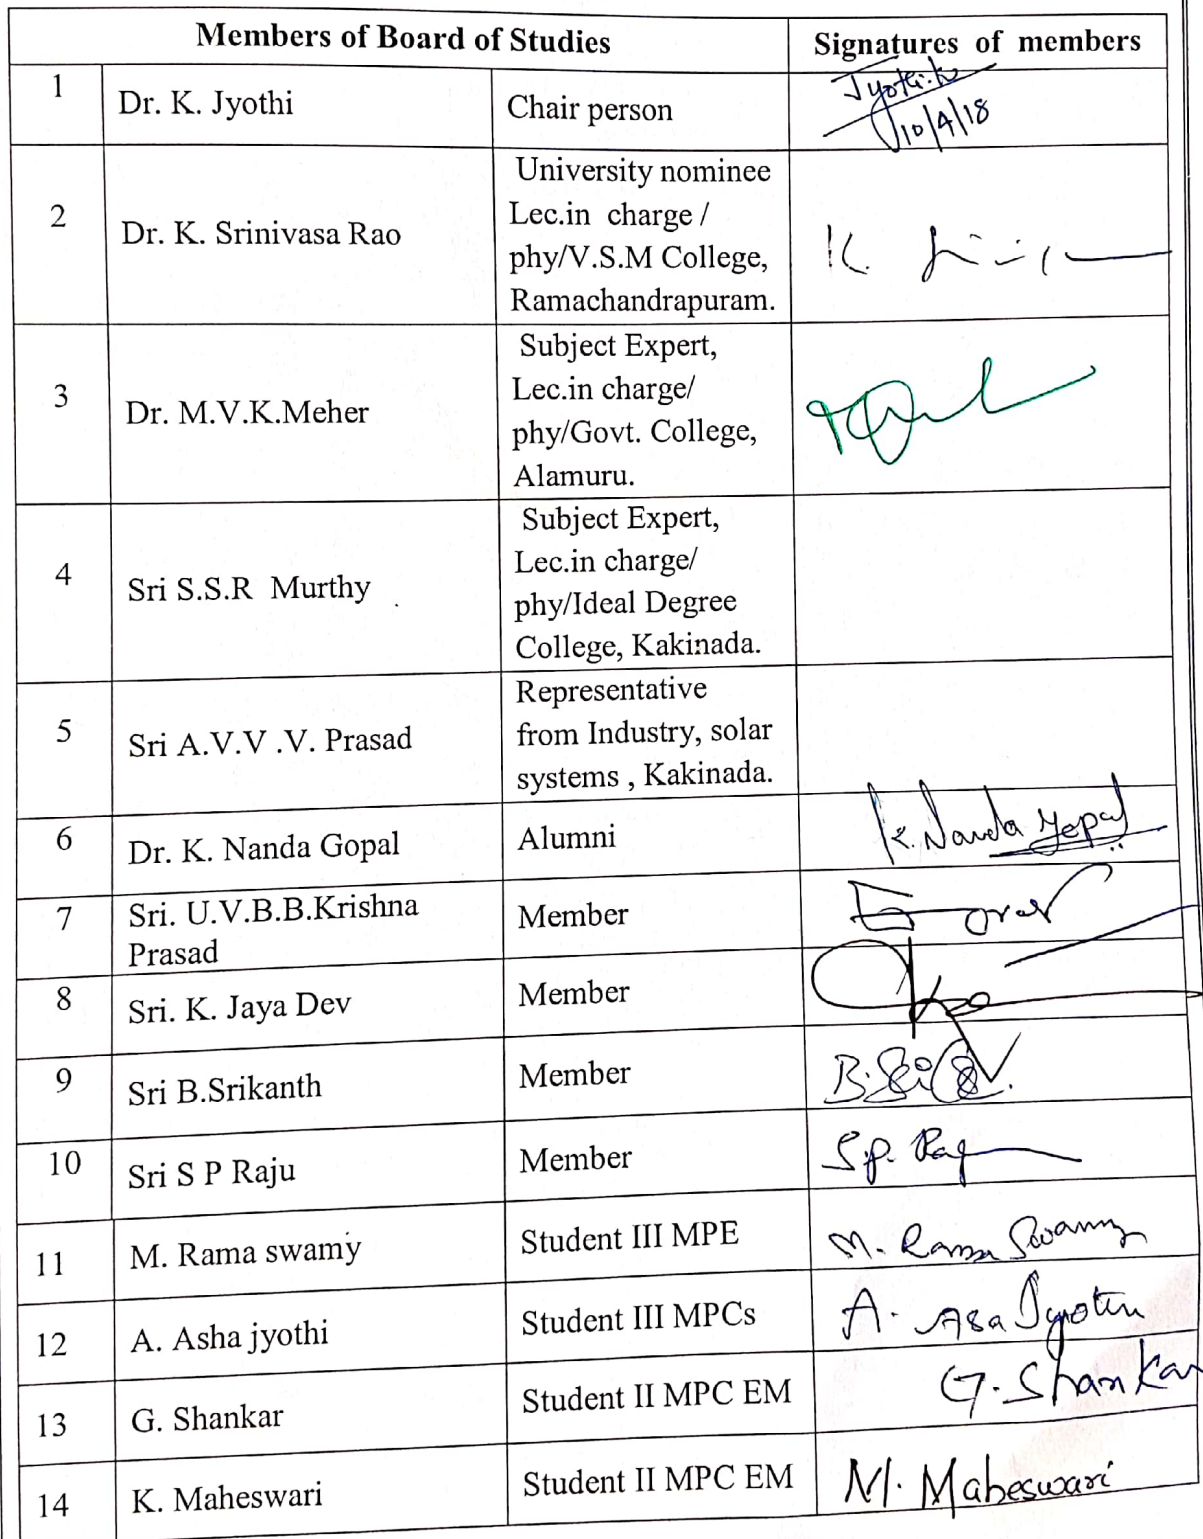 Members of Board of Studies Signatures of members
1 Dr. K. Jyothi Chair person Jyothi.K
10/4/18
2 Dr. K. Srinivasa Rao University nominee
Lec.in charge /
phy/V.S.M College,
Ramachandrapuram.
K.
3 Dr. M.V.K.Meher Subject Expert,
Lec.in charge/
phy/Govt. College,
Alamuru.
4 Sri S.S.R Murthy Subject Expert,
Lec.in charge/
phy/Ideal Degree
College, Kakinada.
5 Sri A.V.V .V. Prasad Representative
from Industry, solar
systems , Kakinada.
6 Dr. K. Nanda Gopal Alumni K. Nanda Gopal
7 Sri. U.V.B.B.Krishna
Prasad Member
8 Sri. K. Jaya Dev Member
9 Sri B.Srikanth Member
10 Sri S P Raju Member S.P. Raju
11 M. Rama swamy Student III MPE M. Rama Swamy
12 A. Asha jyothi Student III MPCs A. Asa Jyothi
13 G. Shankar Student II MPC EM G. Shankar
14 K. Maheswari Student II MPC EM M. Maheswari